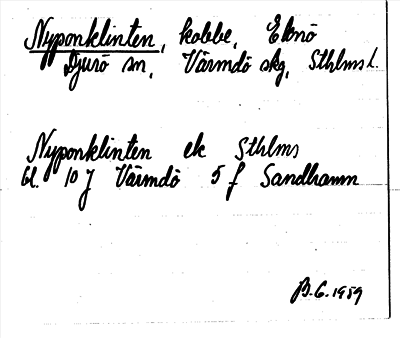 Nyponklinten, kobbe, Eknö
Djurö sn, Värmdö skg, Sthlms l.
Nyponklinten ek Sthlms
bl. 10 J Värmdö 5 f Sandhamn
B.G. 1959